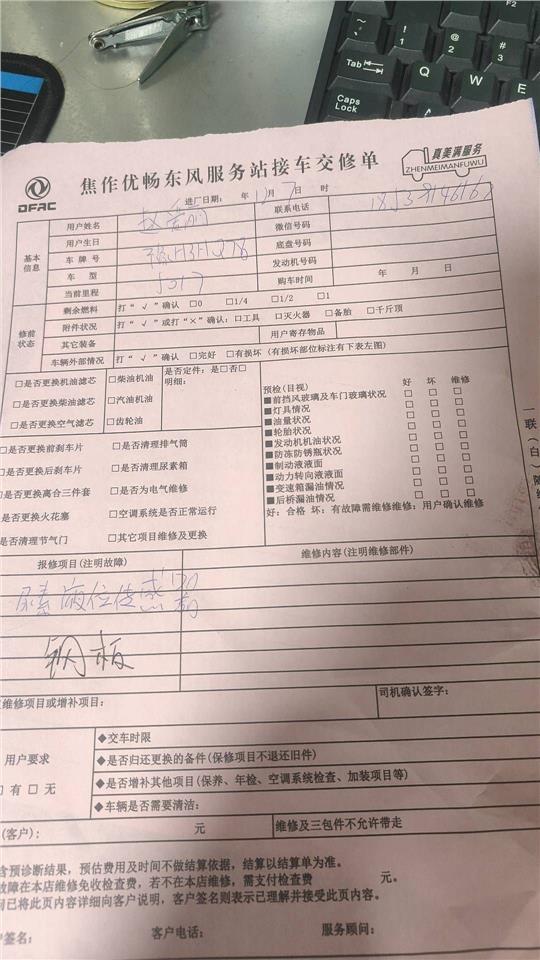 F2
@
2
#
3
Tab
Q
W
Caps
Lock
A
DFAC
焦作优畅东风服务站接车交修单
真美满服务
ZHENMEIMANFUWU
进厂日期: 年 12 月 7 日 时
基本信息
用户姓名
联系电话
用户生日
微信号码
车牌号
底盘号码
车型
发动机号码
当前里程
购车时间 年 月 日
修前状态
剩余燃料 打“√”确认 □0 □1/4 □1/2 □1
附件状况 打“√”或打“×”确认:□工具 □灭火器 □备胎 □千斤顶
其它装备 用户寄存物品
车辆外部情况 打“√”确认 □完好 □有损坏 (有损坏部位标注有下表左图)
□是否更换机油滤芯 □柴油机油
□是否更换柴油滤芯 □汽油机油
□是否更换空气滤芯 □齿轮油
是否定件: 是□否□
明细:
□是否更换前刹车片 □是否清理排气筒
□是否更换后刹车片 □是否清理尿素箱
是否更换离合三件套 □是否为电气维修
是否更换火花塞 □空调系统是否正常运行
是否清理节气门 □其它项目维修及更换
预检(目视) 好 坏 维修
■前挡风玻璃及车门玻璃状况 □ □ □
■灯具情况 □ □ □
■油量状况 □ □ □
■轮胎状况 □ □ □
■发动机机油状况 □ □ □
■防冻防锈瓶状况 □ □ □
■制动液液面 □ □ □
■动力转向液液面 □ □ □
■变速箱漏油情况 □ □ □
■后桥漏油情况 □ □ □
好: 合格 坏: 有故障需维修维修: 用户确认维修
一联(白)
报修项目(注明故障) 维修内容(注明维修部件)
尿素液位传感
钢板
维修项目或增补项目:
司机确认签字:
用户要求
□有 □无
◆交车时限
◆是否归还更换的备件(保修项目不退还旧件)
◆是否增补其他项目(保养、年检、空调系统检查、加装项目等)
◆车辆是否需要清洁:
(客户): 元 维修及三包件不允许带走
含预诊断结果, 预估费用及时间不做结算依据, 结算以结算单为准。
故障在本店维修免收检查费, 若不在本店维修, 需支付检查费 元。
已将此页内容详细向客户说明, 客户签名则表示已理解并接受此页内容。
户签名: 客户电话: 服务顾问: